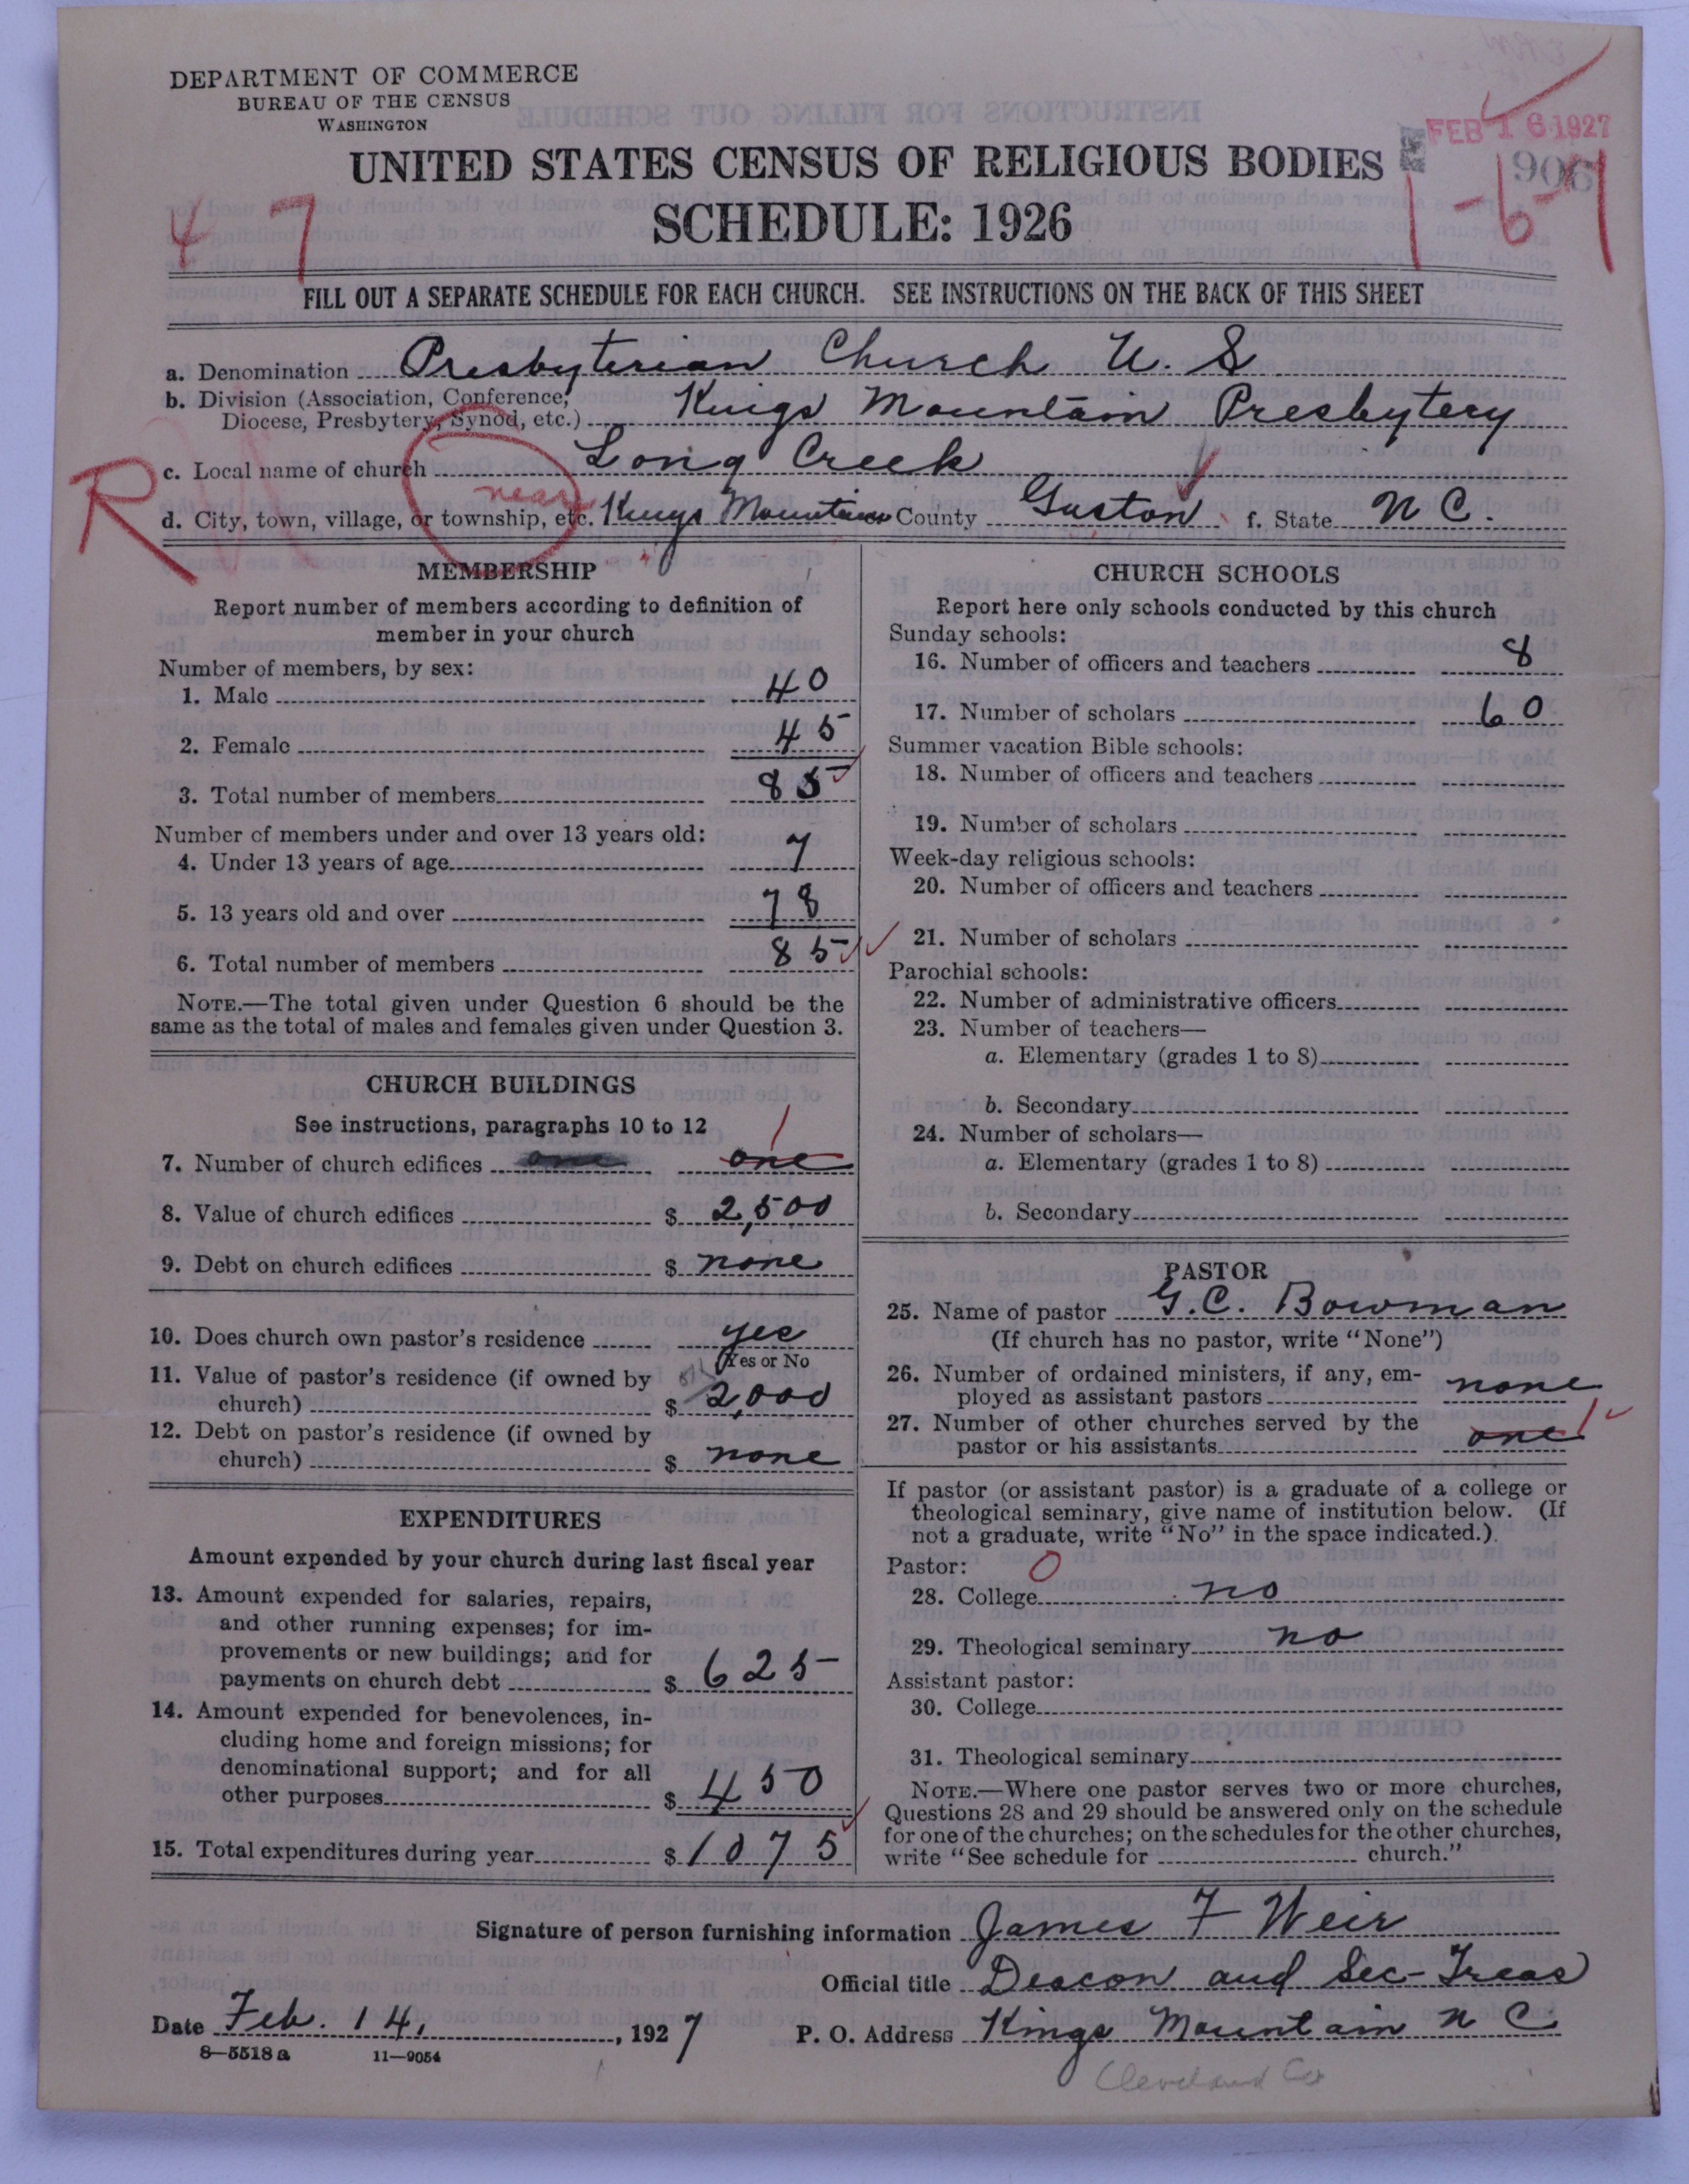 DEPARTMENT OF COMMERCE
BUREAU OF THE CENSUS
WASHINGTON
UNITED STATES CENSUS OF RELIGIOUS BODIES
SCHEDULE: 1926
FEB 16 1927
906
1-6-1
47
FILL OUT A SEPARATE SCHEDULE FOR EACH CHURCH. SEE INSTRUCTIONS ON THE BACK OF THIS SHEET
a. Denomination Presbyterian Church U. S
b. Division (Association, Conference, Diocese, Presbytery, Synod, etc.) Kings Mountain Presbytery
R
c. Local name of church Long Creek
d. City, town, village, or township, etc. near Kings Mountain County Gaston f. State N C.
MEMBERSHIP
Report number of members according to definition of
member in your church
Number of members, by sex:
1. Male 40
2. Female 45
3. Total number of members 85
Number of members under and over 13 years old:
4. Under 13 years of age 7
5. 13 years old and over 78
6. Total number of members 85
NOTE.—The total given under Question 6 should be the
same as the total of males and females given under Question 3.
CHURCH BUILDINGS
See instructions, paragraphs 10 to 12
7. Number of church edifices one one 1
8. Value of church edifices $ 2,500
9. Debt on church edifices $ none
10. Does church own pastor's residence yes
(Yes or No
11. Value of pastor's residence (if owned by
church) $ 2,000
12. Debt on pastor's residence (if owned by
church) $ none
EXPENDITURES
Amount expended by your church during last fiscal year
13. Amount expended for salaries, repairs,
and other running expenses; for im-
provements or new buildings; and for
payments on church debt $ 625
14. Amount expended for benevolences, in-
cluding home and foreign missions; for
denominational support; and for all
other purposes $ 450
15. Total expenditures during year $ 1075
CHURCH SCHOOLS
Report here only schools conducted by this church
Sunday schools:
16. Number of officers and teachers 8
17. Number of scholars 60
Summer vacation Bible schools:
18. Number of officers and teachers
19. Number of scholars
Week-day religious schools:
20. Number of officers and teachers
21. Number of scholars
Parochial schools:
22. Number of administrative officers
23. Number of teachers—
a. Elementary (grades 1 to 8)
b. Secondary
24. Number of scholars—
a. Elementary (grades 1 to 8)
b. Secondary
PASTOR
25. Name of pastor G. C. Bowman
(If church has no pastor, write "None")
26. Number of ordained ministers, if any, em-
ployed as assistant pastors none
27. Number of other churches served by the
pastor or his assistants one 1
If pastor (or assistant pastor) is a graduate of a college or
theological seminary, give name of institution below. (If
not a graduate, write "No" in the space indicated.)
Pastor: 0
28. College no
29. Theological seminary no
Assistant pastor:
30. College
31. Theological seminary
NOTE.—Where one pastor serves two or more churches,
Questions 28 and 29 should be answered only on the schedule
for one of the churches; on the schedules for the other churches,
write "See schedule for church."
Signature of person furnishing information James F Weir
Official title Deacon and Sec-Treas
Date Feb. 14, 1927 P. O. Address Kings Mountain N C
8—5518 a 11—9054
Cleveland Co